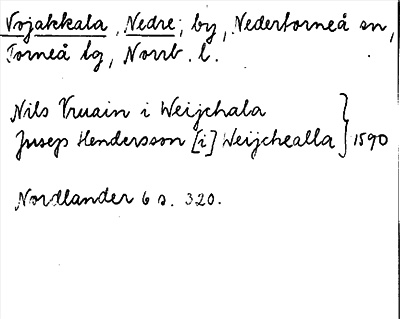 Vojakkala, Nedre, by, Nedertorneå sn,
Torneå lg, Norrb. l.
Nils Vruain i Weijchala
Jusep Hendersson [i] Weijchealla } 1590
Nordlander 6 s. 320.